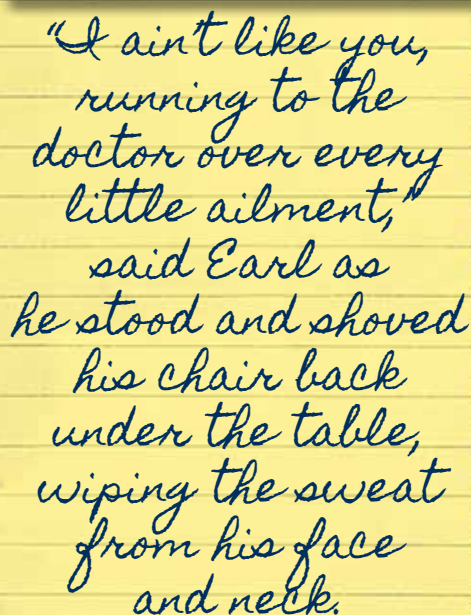 "I ain't like you,
running to the
doctor over every
little ailment,"
said Earl as
he stood and shoved
his chair back
under the table,
wiping the sweat
from his face
and neck.